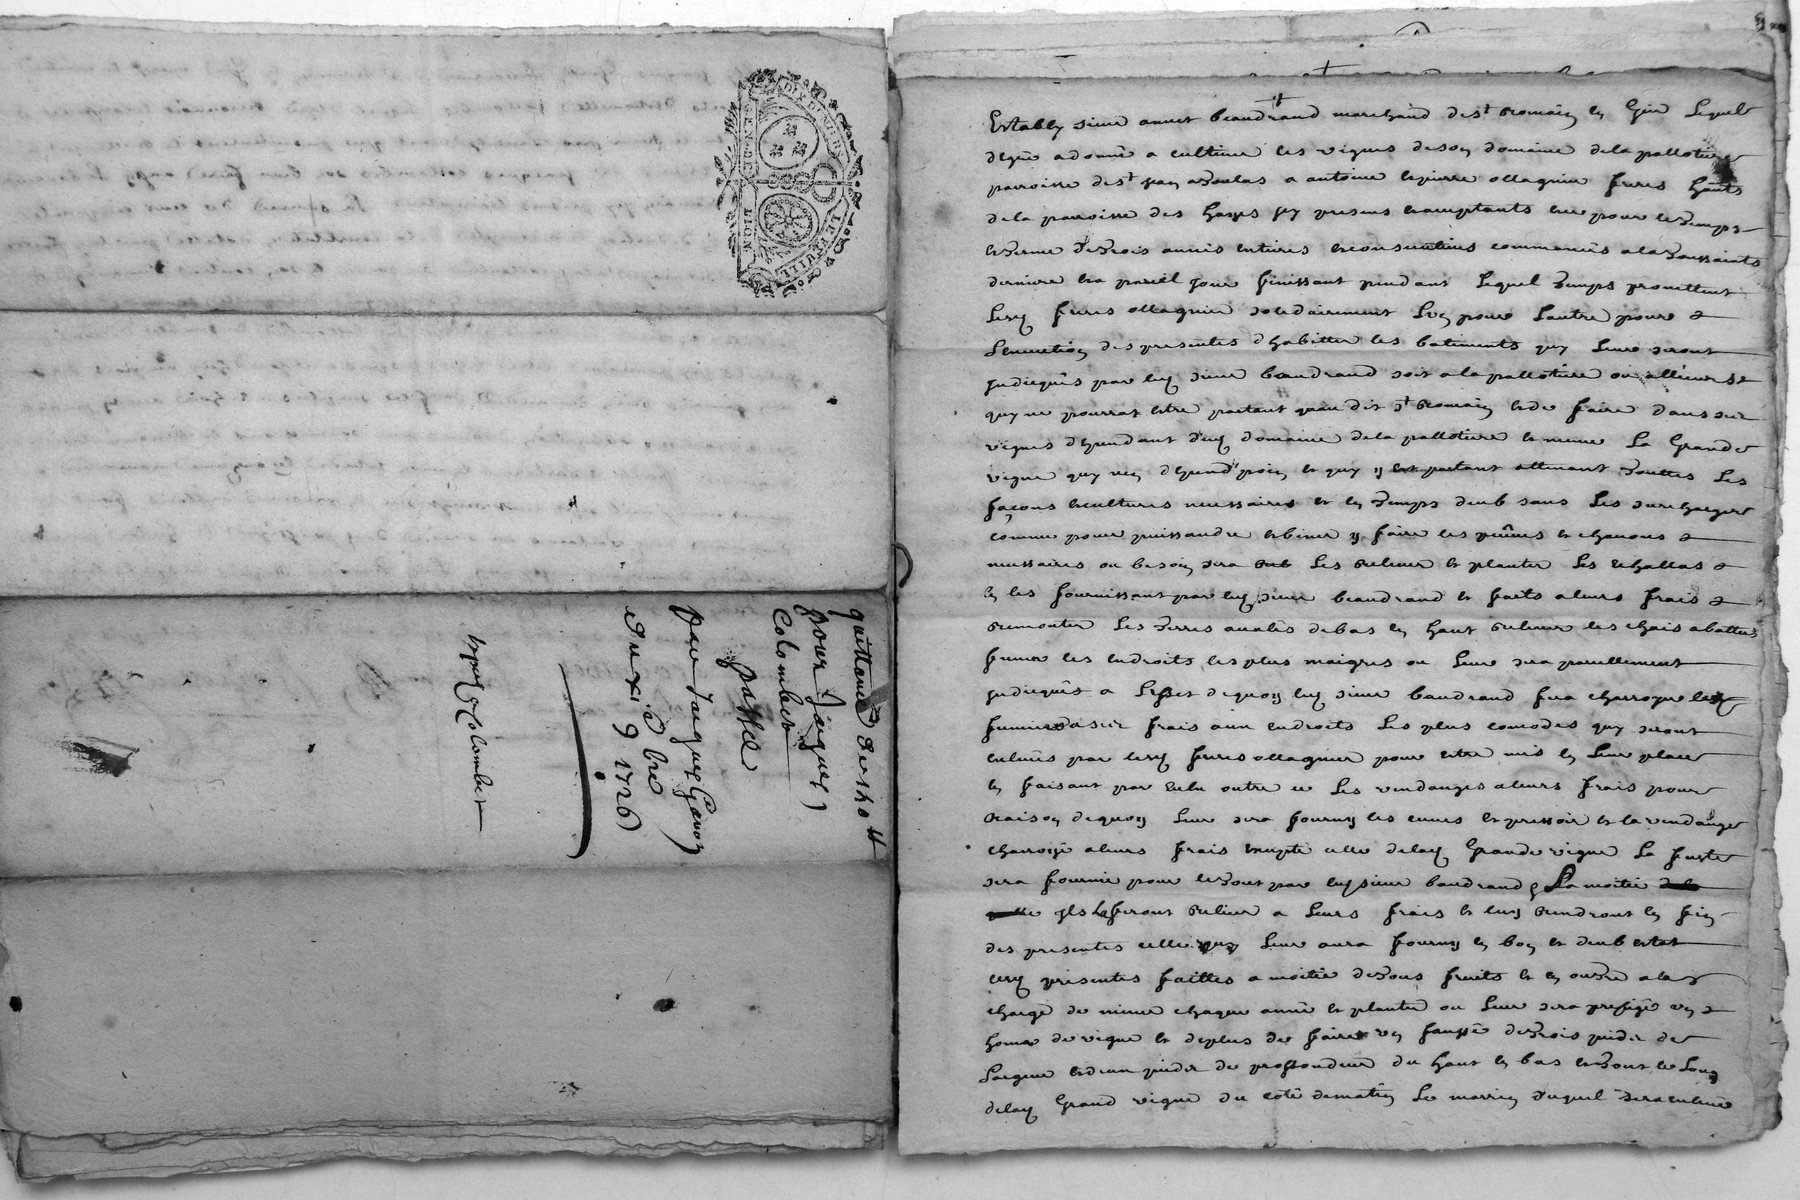 GEN. DE LION
DIX DENIERS
LE FEUILL
quittance de 140 ₶
pour Jacques
Colombet
passée
par Jacques Gavot
du xi d bre
1726
expez Colombet
Estably sieur annet beaudrand marchand de st Romain en Gier Lequel
de gré a donné a cultiver les vignes de son domaine de la pallotiere
parroisse de st jean a antoine et pierre ollagnier freres
de la parroisse des hayes icy presens et acceptants et ce pour le temps
et terme de trois années entieres et consecutives commancées a la toussaints
derniere et a pareil jour finissant pendant Lequel temps promettent
Lesd freres ollagnier sollidairement L'un pour L'autre pour
L'execution des presentes d'habitter les batiments quy Leur seront
indicqués par led sieur beaudrand soit a la pallotiere ou allieurs
quy ne pourrat etre partant quau dit st Romain et de faire dans les
vignes dependant dud domaine de la pallotiere et mesme La Grande
vigne quy n'en depend poin et quy y est partant attenant touttes Les
façons et cultures necessaires et en temps deub sans Les surcharger
comme pour puissandre et biner y faire les
necessaires ou besoin sera Les relever et planter Les echallas
en les fournissant par led sieur beaudrand et faits a leurs frais
remonter Les terres avalés de bas en haut relever les chais abattus
fumer les endroits les plus maigres ou Leur sera pareillement
indicqués a L'effet de quoy led sieur baudrand fera charroyer les
fumiers a ses frais aux endroits Les plus comodes quy seront
enlevés par lesd freres ollagnier pour etre mis en Leur place
en faisant par outre ce Les vendanges a leurs frais pour
raison de quoy Leur sera fourny les cuves et pressoir et la vendange
charroyé a leurs frais excepté celle de lad Grande vigne La fuste
sera fournie pour le tout par led sieur baudrand La moitié
ils La feront relier a Leurs frais et luy rendront en fin
des presentes celle quy Leur aura fourny en bon et deub estat
lesd presentes faittes a moitié de tous fruits et en outre a la
charge de miner chaque année et planter ou Leur sera prefigé un
homée de vigne et de plus de faire un faussé de trois pieds de
Largeur et d'un pieds de proffondeur du haut en bas et tout le Long
de lad Grand vigne du coté de matin Le duquel sera enlevé